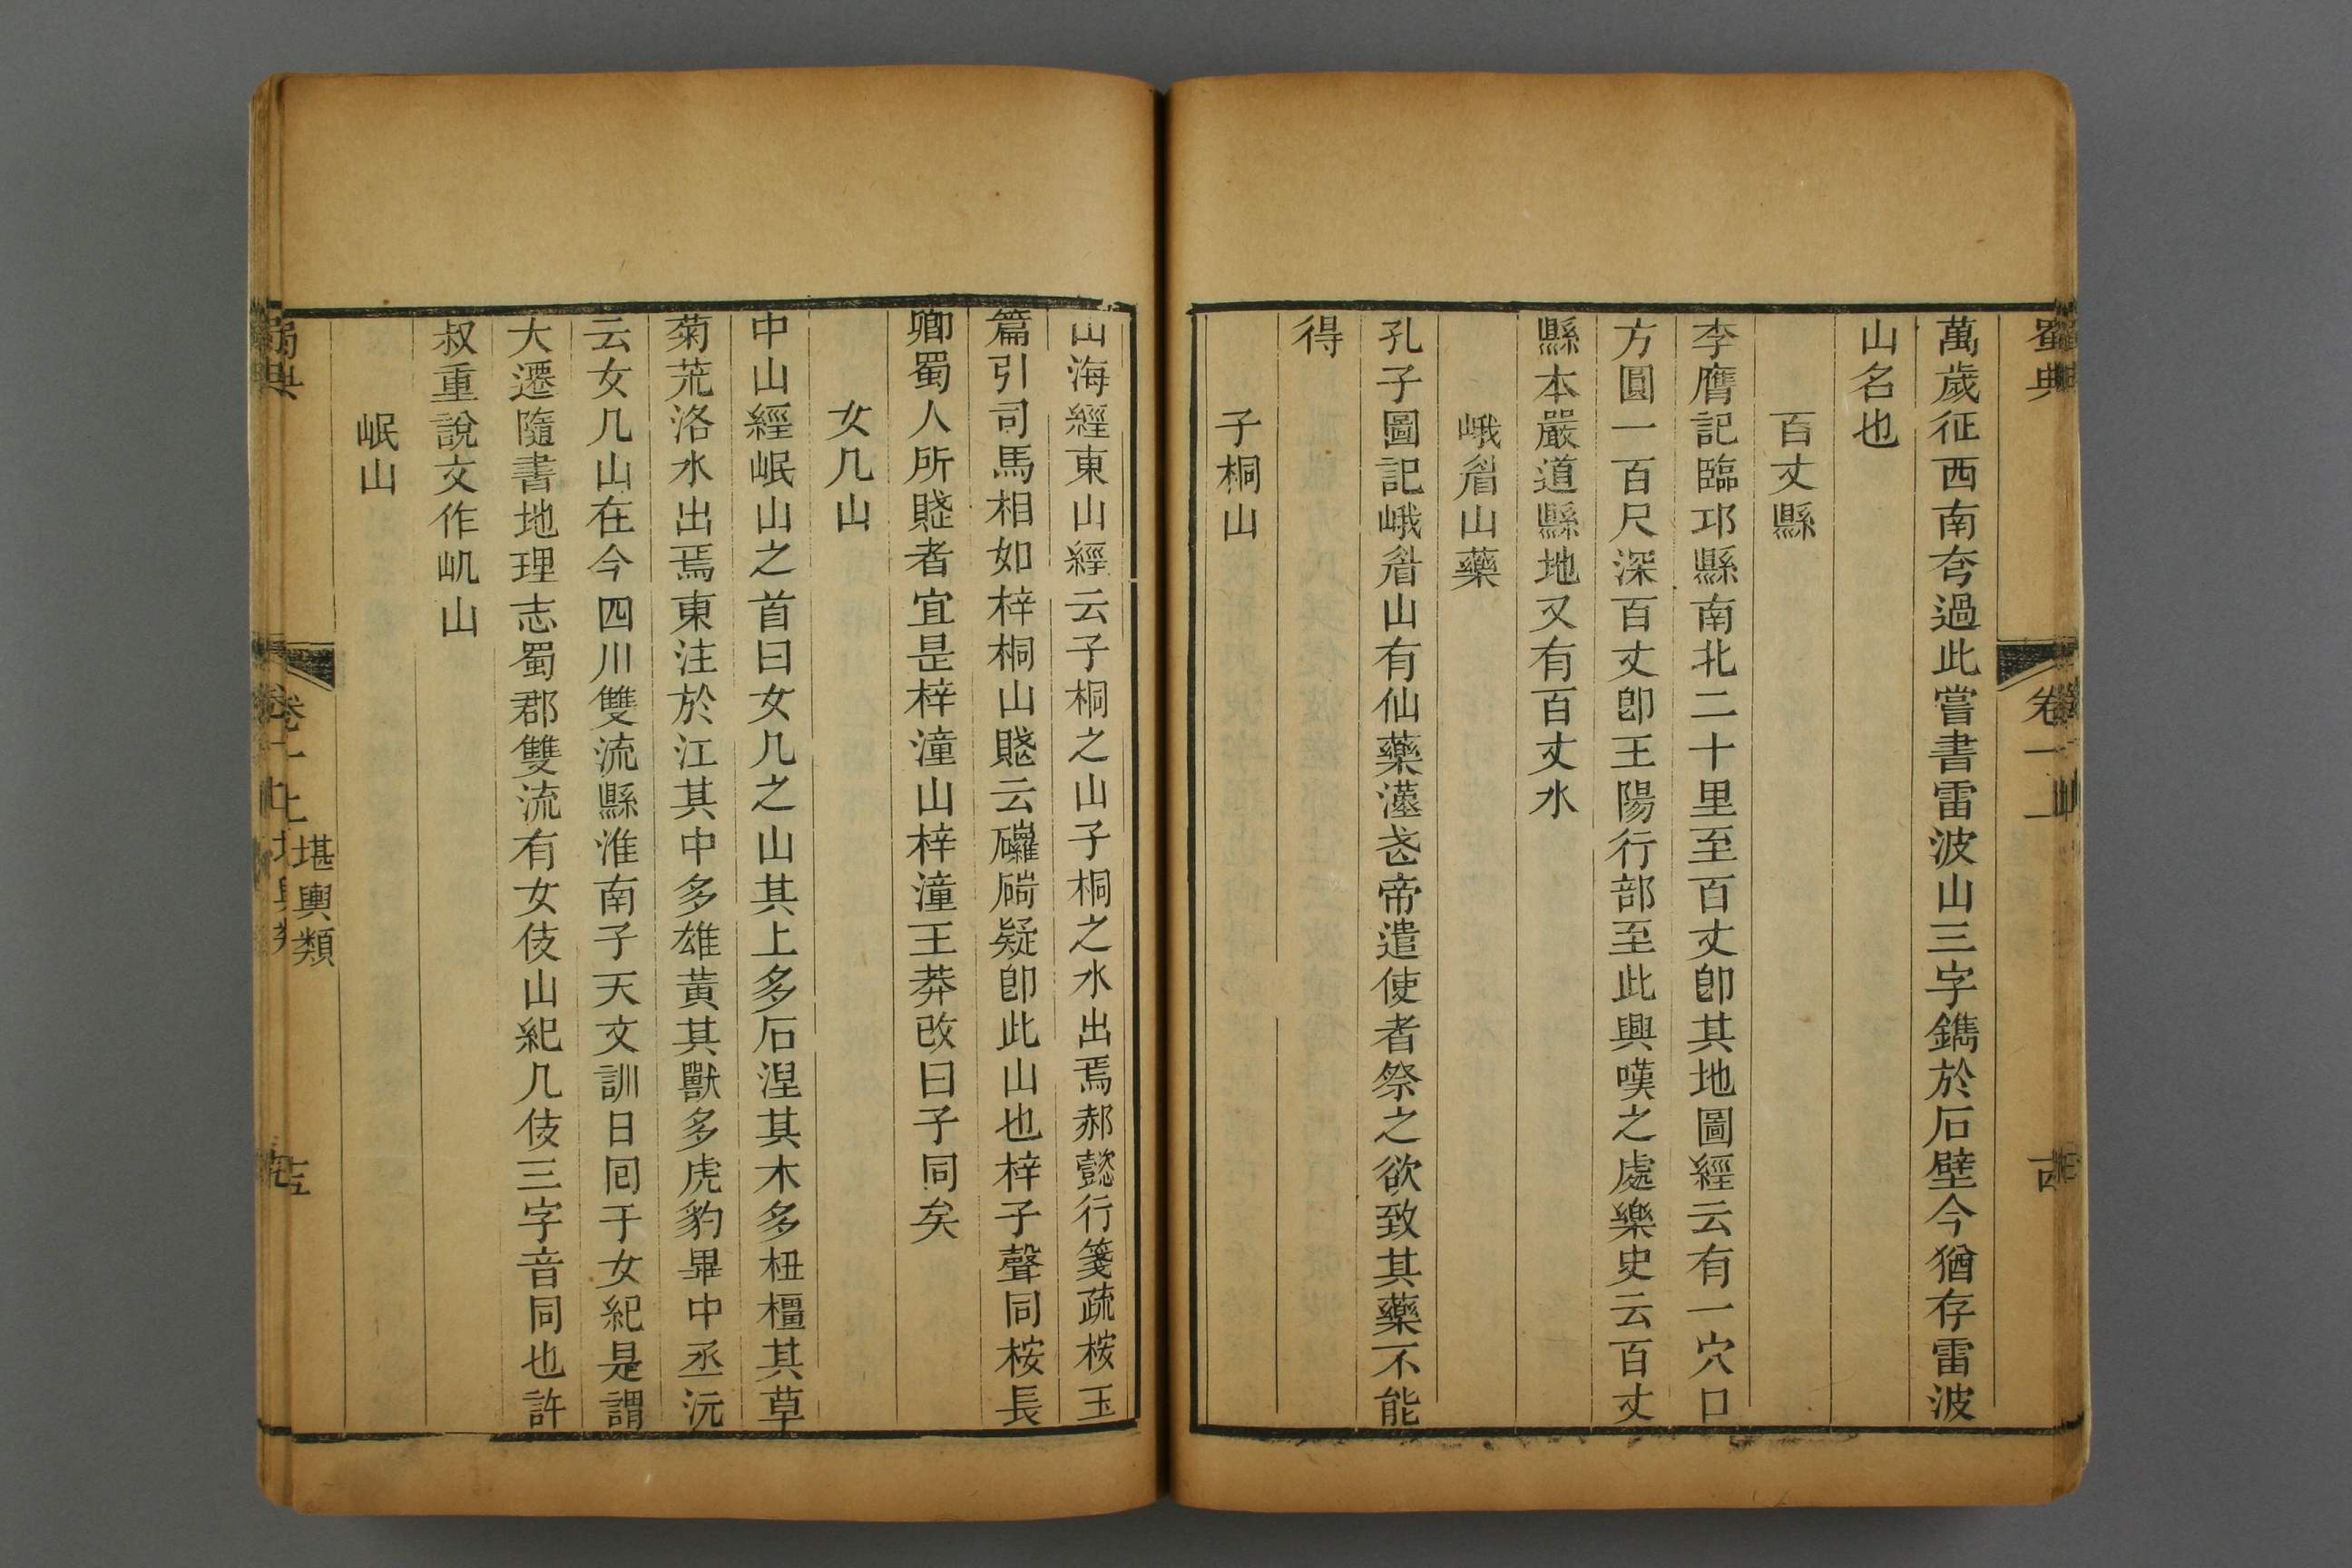 蜀典
卷十一
萬歲征西南夸過此嘗書雷波山三字鐫於石壁今猶存雷波
山名也
百丈縣
李膺記臨邛縣南北二十里至百丈卽其地圖經云有一穴口
方圓一百尺深百丈卽王陽行部至此興嘆之處樂史云百丈
縣本嚴道縣地又有百丈水
峨眉山藥
孔子圖記峨眉山有仙藥漢武帝遣使者祭之欲致其藥不能
得
子桐山
山海經東山經云子桐之山子桐之水出焉郝懿行箋疏桉玉
篇引司馬相如梓桐山賦云礲碋疑卽此山也梓子聲同桉長
卿蜀人所賦者宜是梓潼山梓潼王莽改曰子同矣
女几山
中山經岷山之首曰女几之山其上多石涅其木多杻橿其草
菊荒洛水出焉東注於江其中多雄黃其獸多虎豹畢中丞沅
云女几山在今四川雙流縣淮南子天文訓日回于女紀是謂
大遷隨書地理志蜀郡雙流有女伎山紀几伎三字音同也許
叔重說文作屼山
岷山
堪輿類